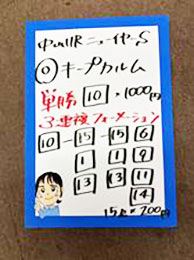 中山11R ニューイヤーS
◎ キープカルム
単勝 10 ×1000円
3連複フォーメーション
10 - 15 - 15 6
1 1 9
13 13 11
14
15点×200円